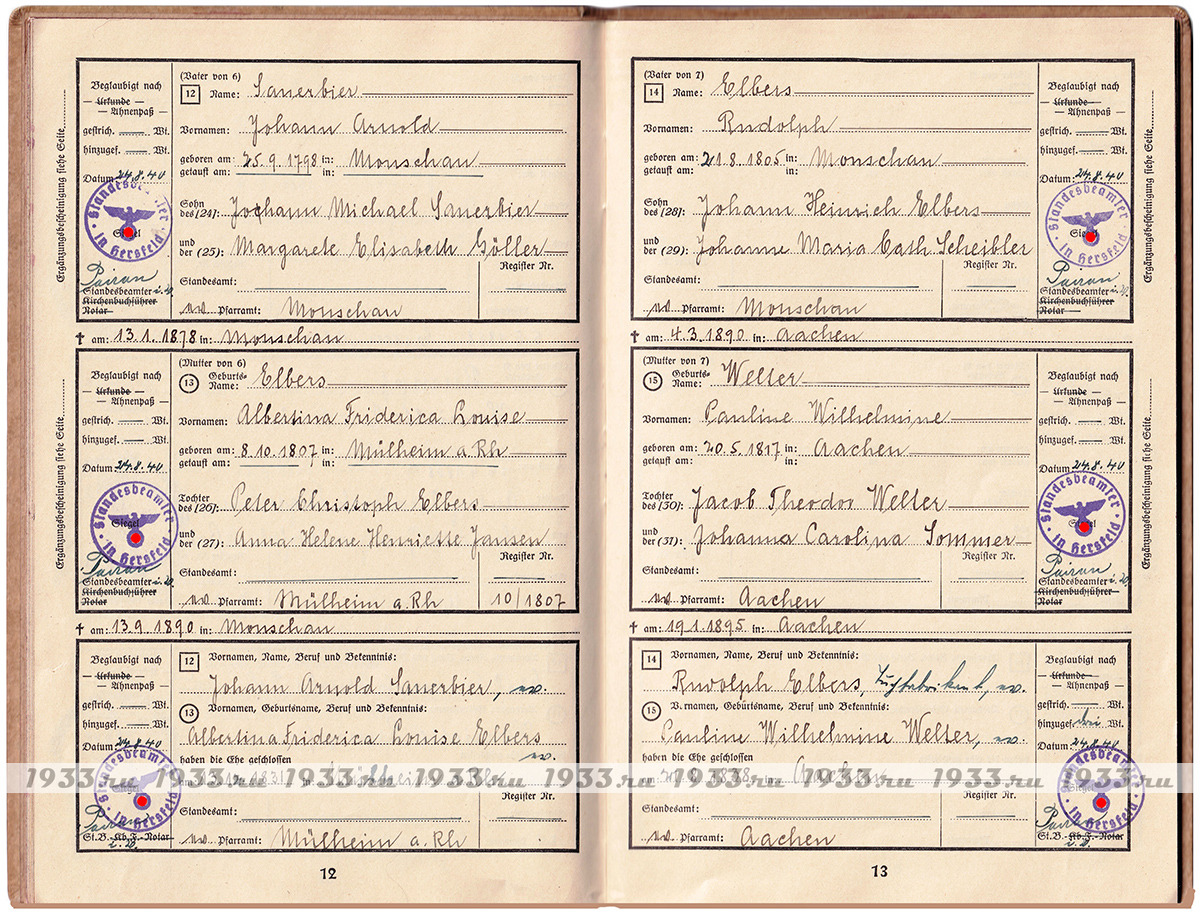 Beglaubigt nach
— Urkunde —
— Ahnenpaß —
gestrich. — Wt.
hinzugef. — Wt.
Datum 24.8.40
Standesbeamter in Hersfeld
Siegel
Standesbeamter i.V.
Kirchenbuchführer
Notar
Ergänzungsbescheinigung siehe Seite
(Vater von 6)
12 Name: Sauerbier
Vornamen: Johann Arnold
geboren am: 25.9.1798 in: Monschau
getauft am: in:
Sohn des (24): Johann Michael Sauerbier
und der (25): Margarete Elisabeth Göller
Register Nr.
Standesamt:
ev. Pfarramt: Monschau
† am: 13.1.1878 in: Monschau
Beglaubigt nach
— Urkunde —
— Ahnenpaß —
gestrich. — Wt.
hinzugef. — Wt.
Datum 24.8.40
Standesbeamter in Hersfeld
Siegel
Standesbeamter i.V.
Kirchenbuchführer
Notar
Ergänzungsbescheinigung siehe Seite
(Mutter von 6)
13 Geburts-Name: Elbers
Vornamen: Albertina Friderica Louise
geboren am: 8.10.1807 in: Mülheim a. Rh
getauft am: in:
Tochter des (26): Peter Christoph Elbers
und der (27): Anna Helene Henriette Jansen
Register Nr.
Standesamt:
ev. Pfarramt: Mülheim a. Rh 10/1807
† am: 13.9.1890 in: Monschau
Beglaubigt nach
— Urkunde —
— Ahnenpaß —
gestrich. — Wt.
hinzugef. — Wt.
Datum 24.8.40
Standesbeamter in Hersfeld
Siegel
St.B. — Kb.F. — Notar
i.V.
12 Vornamen, Name, Beruf und Bekenntnis:
Johann Arnold Sauerbier, ev.
13 Vornamen, Geburtsname, Beruf und Bekenntnis:
Albertina Friderica Louise Elbers
ev.
haben die Ehe geschlossen
am: in:
Register Nr.
Standesamt:
ev. Pfarramt: Mülheim a. Rh
12
(Vater von 7)
14 Name: Elbers
Vornamen: Rudolph
geboren am: 21.8.1805 in: Monschau
getauft am: in:
Sohn des (28): Johann Heinrich Elbers
und der (29): Johanne Maria Cath Scheibler
Register Nr.
Standesamt:
ev. Pfarramt: Monschau
† am: 4.3.1890 in: Aachen
Beglaubigt nach
— Urkunde —
— Ahnenpaß —
gestrich. — Wt.
hinzugef. — Wt.
Datum: 24.8.40
Standesbeamter in Hersfeld
Siegel
Standesbeamter i.V.
Kirchenbuchführer
Notar
Ergänzungsbescheinigung siehe Seite
(Mutter von 7)
15 Geburts-Name: Welter
Vornamen: Pauline Wilhelmine
geboren am: 20.5.1817 in: Aachen
getauft am: in:
Tochter des (30): Jacob Theodor Welter
und der (31): Johanna Carolina Sommer
Register Nr.
Standesamt:
ev. Pfarramt: Aachen
† am: 19.1.1895 in: Aachen
Beglaubigt nach
— Urkunde —
— Ahnenpaß —
gestrich. — Wt.
hinzugef. — Wt.
Datum 24.8.40
Standesbeamter in Hersfeld
Siegel
Standesbeamter i.V.
Kirchenbuchführer
Notar
Ergänzungsbescheinigung siehe Seite
14 Vornamen, Name, Beruf und Bekenntnis:
Rudolph Elbers, Tuchfabrikant, ev.
15 V.rnamen, Geburtsname, Beruf und Bekenntnis:
Pauline Wilhelmine Welter, ev.
haben die Ehe geschlossen
am: in: Aachen
Register Nr.
Standesamt:
ev. Pfarramt: Aachen
Beglaubigt nach
— Urkunde —
— Ahnenpaß —
gestrich. — Wt.
hinzugef. drei Wt.
Datum 24.8.40
Standesbeamter in Hersfeld
Siegel
St.B. — Kb.F. — Notar
i.V.
13
1933.ru ★ 1933.ru ★ 1933.ru ★ 1933.ru ★ 1933.ru ★ 1933.ru ★ 1933.ru ★ 1933.ru ★ 1933.ru